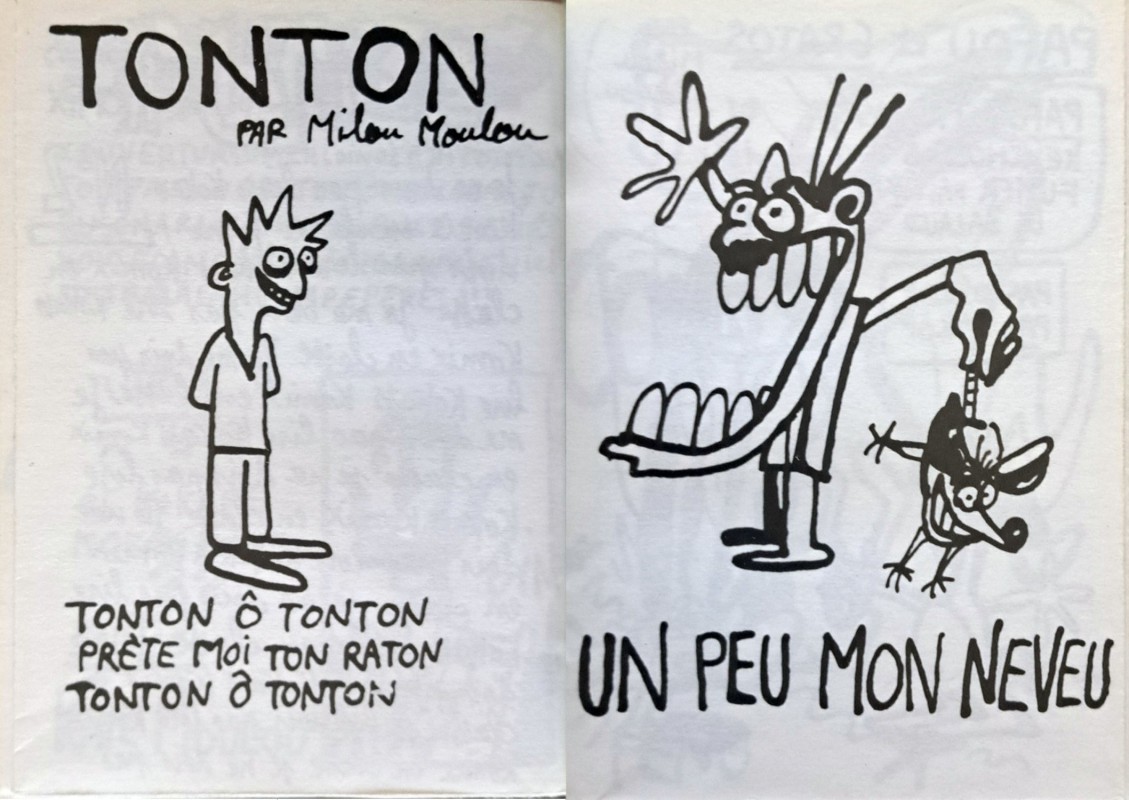 TONTON
PAR Milou Moulou
TONTON Ô TONTON
PRÈTE MOi TON RATON
TONTON Ô TONTON
UN PEU MON NEVEU